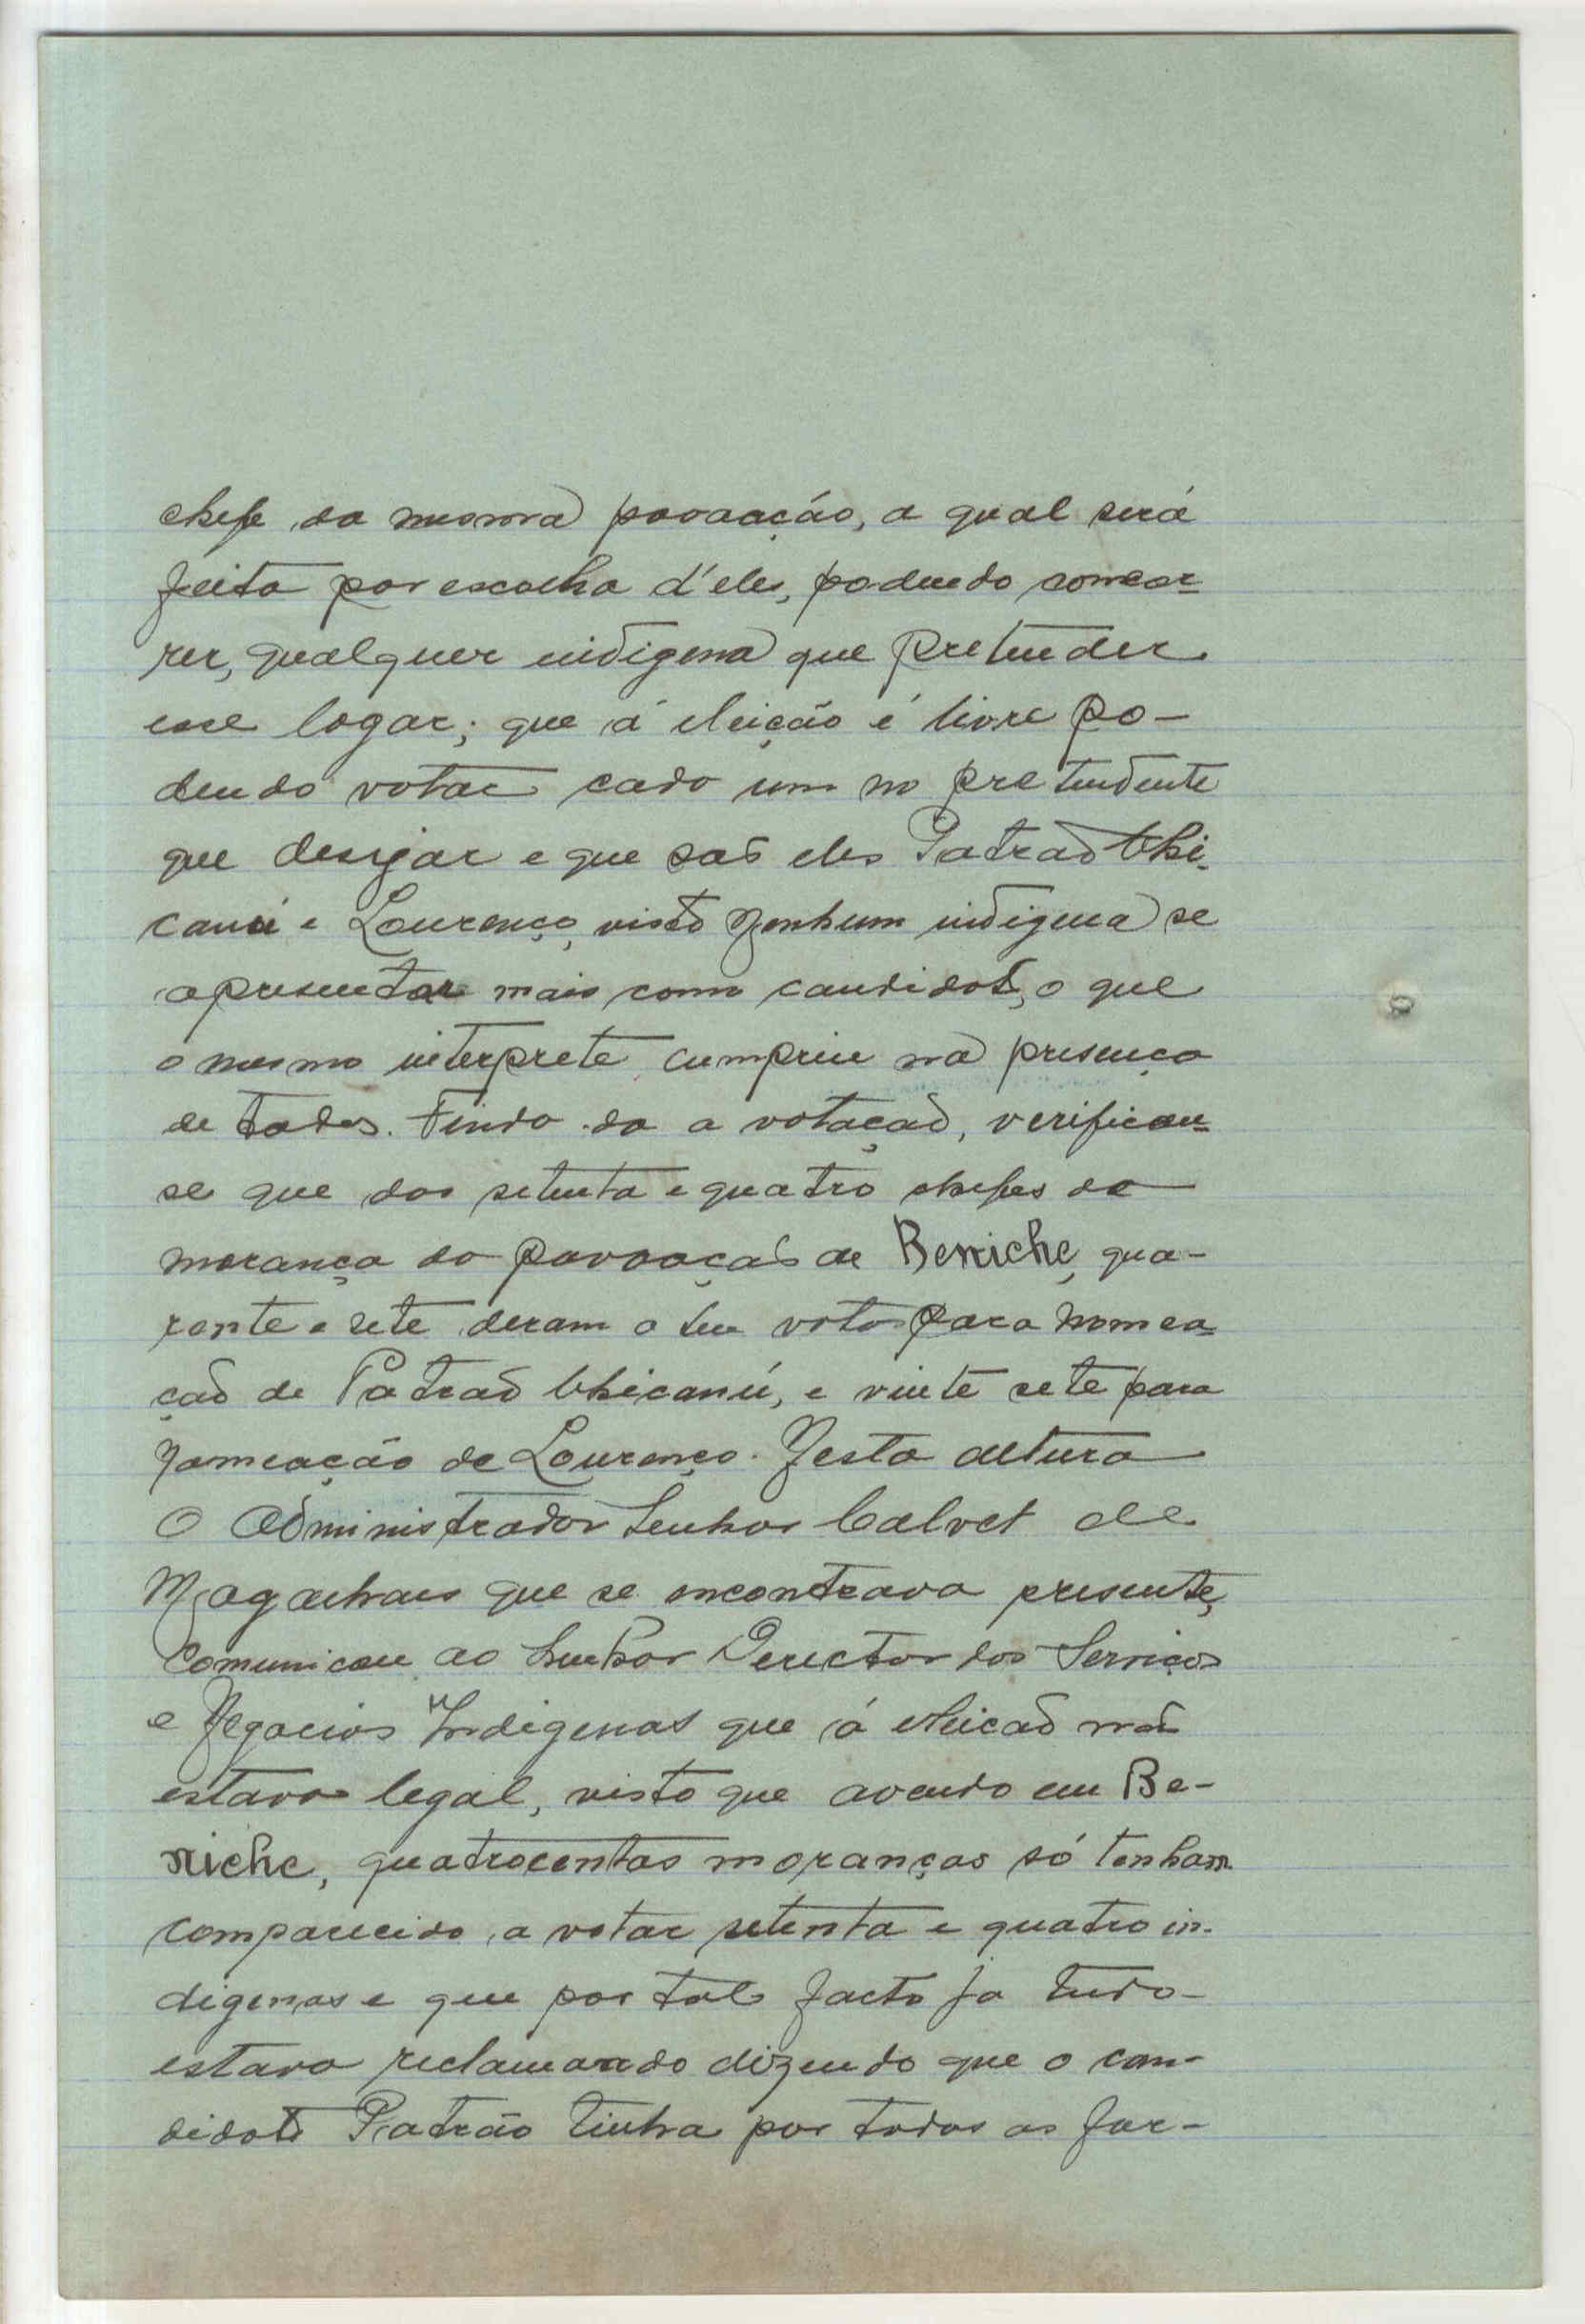 chefe da mesma povoação, a qual será
feita por escolha d'eles, podendo concor-
rer, qualquer indigena que pretender
esse logar; que á eleição é livre po-
dendo votar cada um no pretendente
que desejar e que são eles Patrão Chi-
canú e Lourenço, visto nenhum indigena se
apresentar mais como candidato, o que
o mesmo interprete cumpriu na presença
de todos. Findo da a votação, verificou-
se que dos setenta e quatro chefes de
morança da povoação de Beniche, qua-
renta e sete deram o seu voto para nomea-
ção de Patrão Chicanú, e vinte sete para
nomeação de Lourenço. Nesta altura
O Administrador Senhor Calvet de
Magalhaes que se encontrava presente,
comunicou ao Senhor Derector dos Serviços
e Negocios Indigenas que á eleicão não
estava legal, visto que avendo em Be-
niche, quatrocentas moranças só tenham
comparecido a votar setenta e quatro in-
digenas e que por tal facto ja tudo
estava reclamando dizendo que o can-
didato Patrão tinha por todas as for-